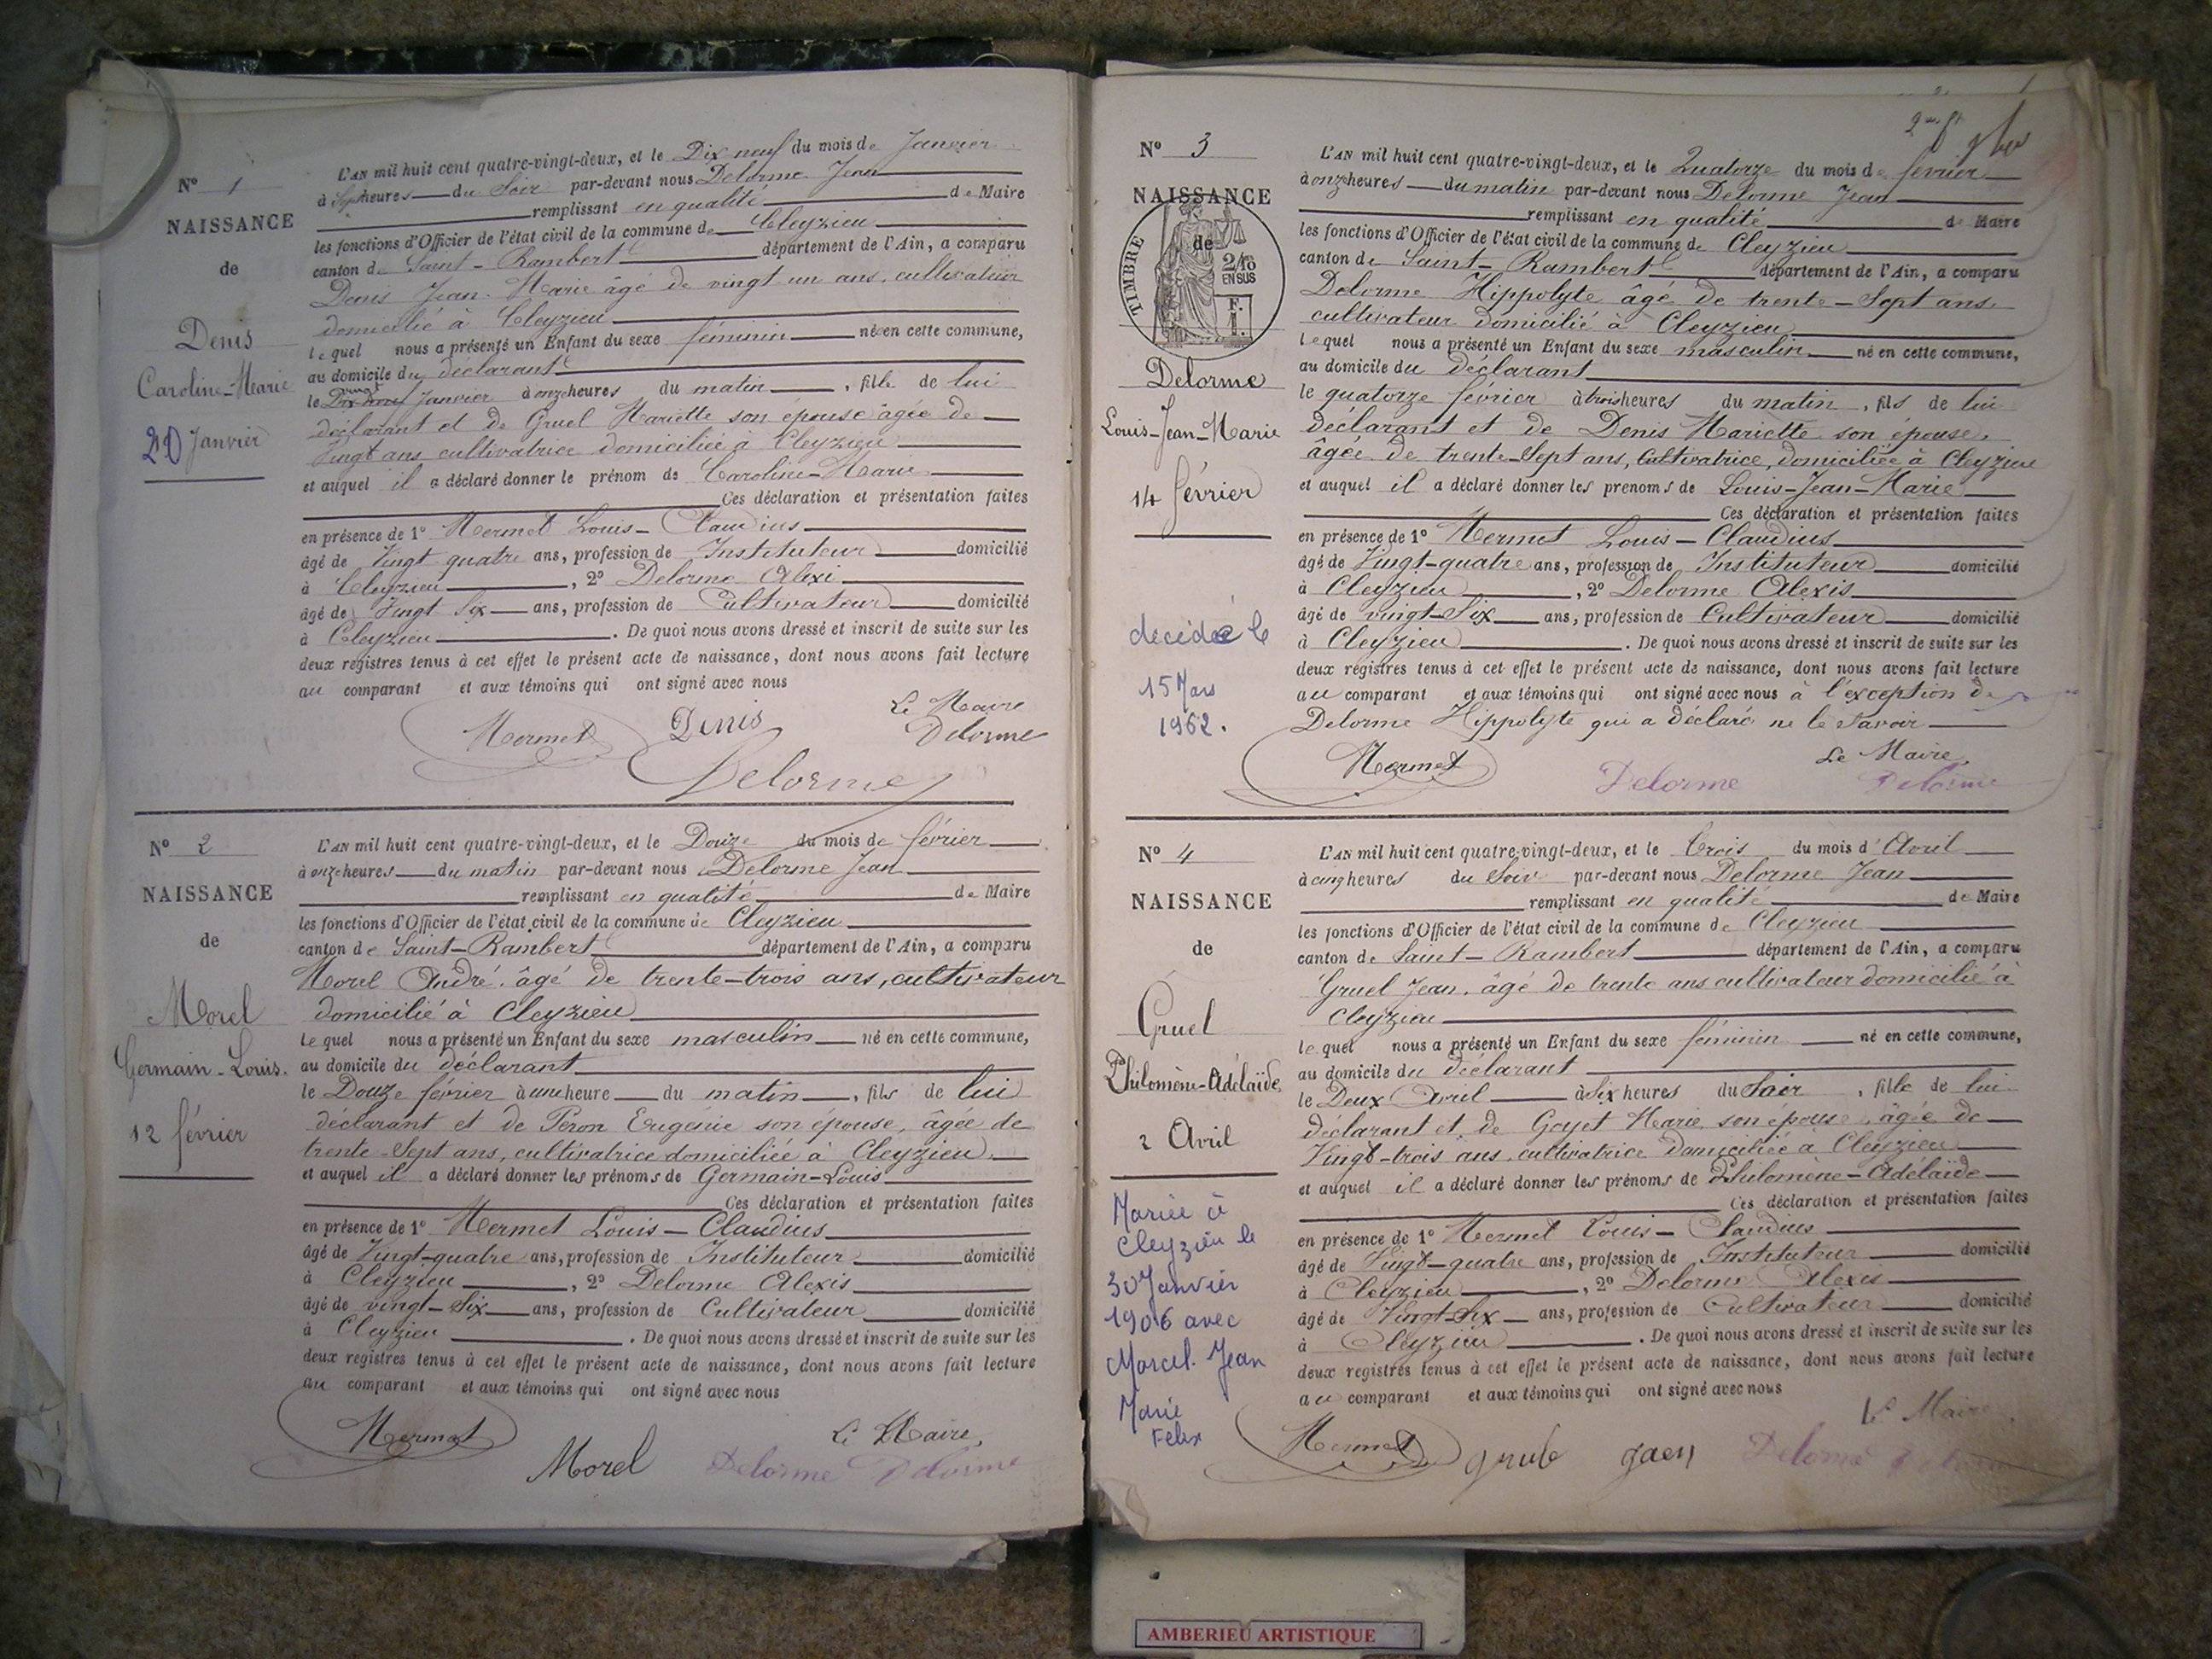 N° 1
NAISSANCE
de
Denis
Caroline-Marie
Janvier
L'AN mil huit cent quatre-vingt-deux, et le Dix neuf du mois de Janvier
à Sept heures du Soir par-devant nous Delorme Jean
remplissant en qualité de Maire
les fonctions d'Officier de l'état civil de la commune de Cleyzieu
canton de Saint-Rambert département de l'Ain, a comparu
Denis Jean-Marie âgé de vingt un ans, cultivateur
domicilié à Cleyzieu
lequel nous a présenté un Enfant du sexe féminin né en cette commune,
au domicile du déclarant
le Janvier à onze heures du matin, fille de lui
déclarant et de Gruel Mariette son épouse âgée de
Vingt ans cultivatrice domiciliée à Cleyzieu
et auquel il a déclaré donner le prénom de Caroline-Marie
Ces déclaration et présentation faites
en présence de 1° Mermet Louis-Claudius
âgé de Vingt quatre ans, profession de Instituteur domicilié
à Cleyzieu, 2° Delorme Alexi
âgé de Vingt Six ans, profession de Cultivateur domicilié
à Cleyzieu. De quoi nous avons dressé et inscrit de suite sur les
deux registres tenus à cet effet le présent acte de naissance, dont nous avons fait lecture
au comparant et aux témoins qui ont signé avec nous
Le Maire
Mermet Denis Delorme
Delorme
N° 2
NAISSANCE
de
Morel
Germain-Louis.
12 février
L'AN mil huit cent quatre-vingt-deux, et le Douze du mois de février
à onze heures du matin par-devant nous Delorme Jean
remplissant en qualité de Maire
les fonctions d'Officier de l'état civil de la commune de Cleyzieu
canton de Saint-Rambert département de l'Ain, a comparu
Morel André, âgé de trente-trois ans, cultivateur
domicilié à Cleyzieu
lequel nous a présenté un Enfant du sexe masculin né en cette commune,
au domicile du déclarant
le Douze février à une heure du matin, fils de lui
déclarant et de Péron Eugénie son épouse, âgée de
trente-Sept ans, cultivatrice domiciliée à Cleyzieu.
et auquel il a déclaré donner les prénoms de Germain-Louis
Ces déclaration et présentation faites
en présence de 1° Mermet Louis-Claudius
âgé de Vingt-quatre ans, profession de Instituteur domicilié
à Cleyzieu, 2° Delorme Alexis
âgé de vingt-Six ans, profession de Cultivateur domicilié
à Cleyzieu. De quoi nous avons dressé et inscrit de suite sur les
deux registres tenus à cet effet le présent acte de naissance, dont nous avons fait lecture
au comparant et aux témoins qui ont signé avec nous
Le Maire,
Mermet Morel Delorme Delorme
N° 3
NAISSANCE
de
TIMBRE
2/10
EN SUS
F.
1.
Delorme
Louis-Jean-Marie
14 février
décédée le
15 Mars
1962.
L'AN mil huit cent quatre-vingt-deux, et le Quatorze du mois de février
à onze heures du matin par-devant nous Delorme Jean
remplissant en qualité de Maire
les fonctions d'Officier de l'état civil de la commune de Cleyzieu
canton de Saint-Rambert département de l'Ain, a comparu
Delorme Hippolyte âgé de trente-Sept ans,
cultivateur domicilié à Cleyzieu
lequel nous a présenté un Enfant du sexe masculin né en cette commune,
au domicile du déclarant
le quatorze février à trois heures du matin, fils de lui
déclarant et de Denis Mariette son épouse,
âgée de trente-Sept ans, Cultivatrice, domiciliée à Cleyzieu
et auquel il a déclaré donner les prenoms de Louis-Jean-Marie
Ces déclaration et présentation faites
en présence de 1° Mermet Louis-Claudius
âgé de Vingt-quatre ans, profession de Instituteur domicilié
à Cleyzieu, 2° Delorme Alexis
âgé de vingt-Six ans, profession de Cultivateur domicilié
à Cleyzieu. De quoi nous avons dressé et inscrit de suite sur les
deux registres tenus à cet effet le présent acte de naissance, dont nous avons fait lecture
au comparant et aux témoins qui ont signé avec nous à l'exception de
Delorme Hippolyte qui a déclaré ne le Savoir
Le Maire,
Mermet Delorme Delorme
N° 4
NAISSANCE
de
Gruel
Philomène-Adélaïde
2 Avril
Mariée à
Cleyzieu le
30 Janvier
1906 avec
Marcel Jean
Marie
Felix
L'AN mil huit cent quatre-vingt-deux, et le Trois du mois d'Avril
à cinq heures du Soir par-devant nous Delorme Jean
remplissant en qualité de Maire
les fonctions d'Officier de l'état civil de la commune de Cleyzieu
canton de Saint-Rambert département de l'Ain, a comparu
Gruel Jean, âgé de trente ans cultivateur domicilié à
Cleyzieu
lequel nous a présenté un Enfant du sexe féminin né en cette commune,
au domicile du déclarant
le Deux Avril à Six heures du Soir, fille de lui
déclarant et de Goyet Marie son épouse, âgée de
Vingt-trois ans, cultivatrice Domiciliée à Cleyzieu
et auquel il a déclaré donner les prénoms de Philomène-Adélaïde
Ces déclaration et présentation faites
en présence de 1° Mermet Louis-Claudius
âgé de Vingt-quatre ans, profession de Instituteur domicilié
à Cleyzieu, 2° Delorme Alexis
âgé de Vingt-Six ans, profession de Cultivateur domicilié
à Cleyzieu. De quoi nous avons dressé et inscrit de suite sur les
deux registres tenus à cet effet le présent acte de naissance, dont nous avons fait lecture
au comparant et aux témoins qui ont signé avec nous
Le Maire,
Mermet Delorme
AMBERIEU ARTISTIQUE